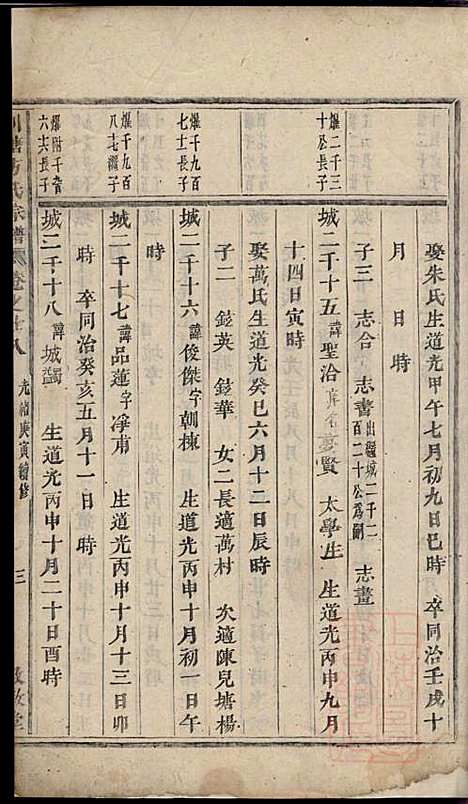 娶朱氏生道光甲午七月初九日巳時 卒同治壬戌十
月 日 時
子三 志合 志書出繼城二千二百二十公為嗣 志畫
燿二千三十公長子
城二千十五諱聖治 賢 太學生 生道光丙申九月
十四日寅時
娶萬氏生道光癸巳六月十二日辰時
子二 錺英 錺華 女二長適萬村 次適陳兒塘楊
燿千九百七十長子
城二千十六諱俊傑字朝棟 生道光丙申十月初一日午
時
燿千九百八七繼子
城二千十七諱品蓮字淨甫 生道光丙申十月十三日卯
時 卒同治癸亥五月十一日 時
燿附千壹六六長子
城二千十八諱城蠲 生道光丙申十月二十日酉時
方氏宗譜 卷之 光緒庚寅續修 三 敦敘堂